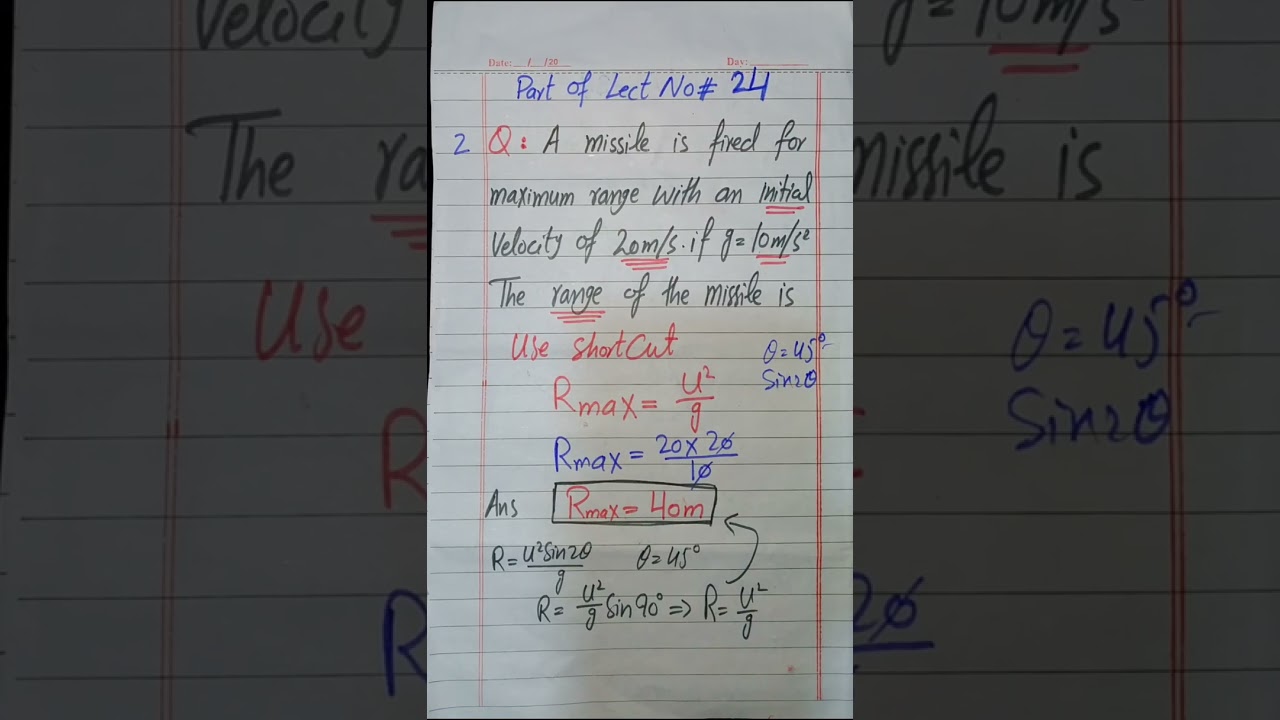 Date: __/__/20__ Day:
Part of Lect No# 24
2 Q: A missile is fired for
maximum range with an initial
velocity of 20m/s. if g = 10m/s²
The range of the missile is
Use shortcut θ = 45°
Sin2θ
Rmax = U²/g
Rmax = 20 x 20/10
Ans Rmax = 40m
R = U²Sin2θ/g θ = 45°
R = U²/g Sin90° ⇒ R = U²/g
velocity
g = 10m/s²
The ra
missile is
Use
θ = 45°
Sin2θ
R
R
20